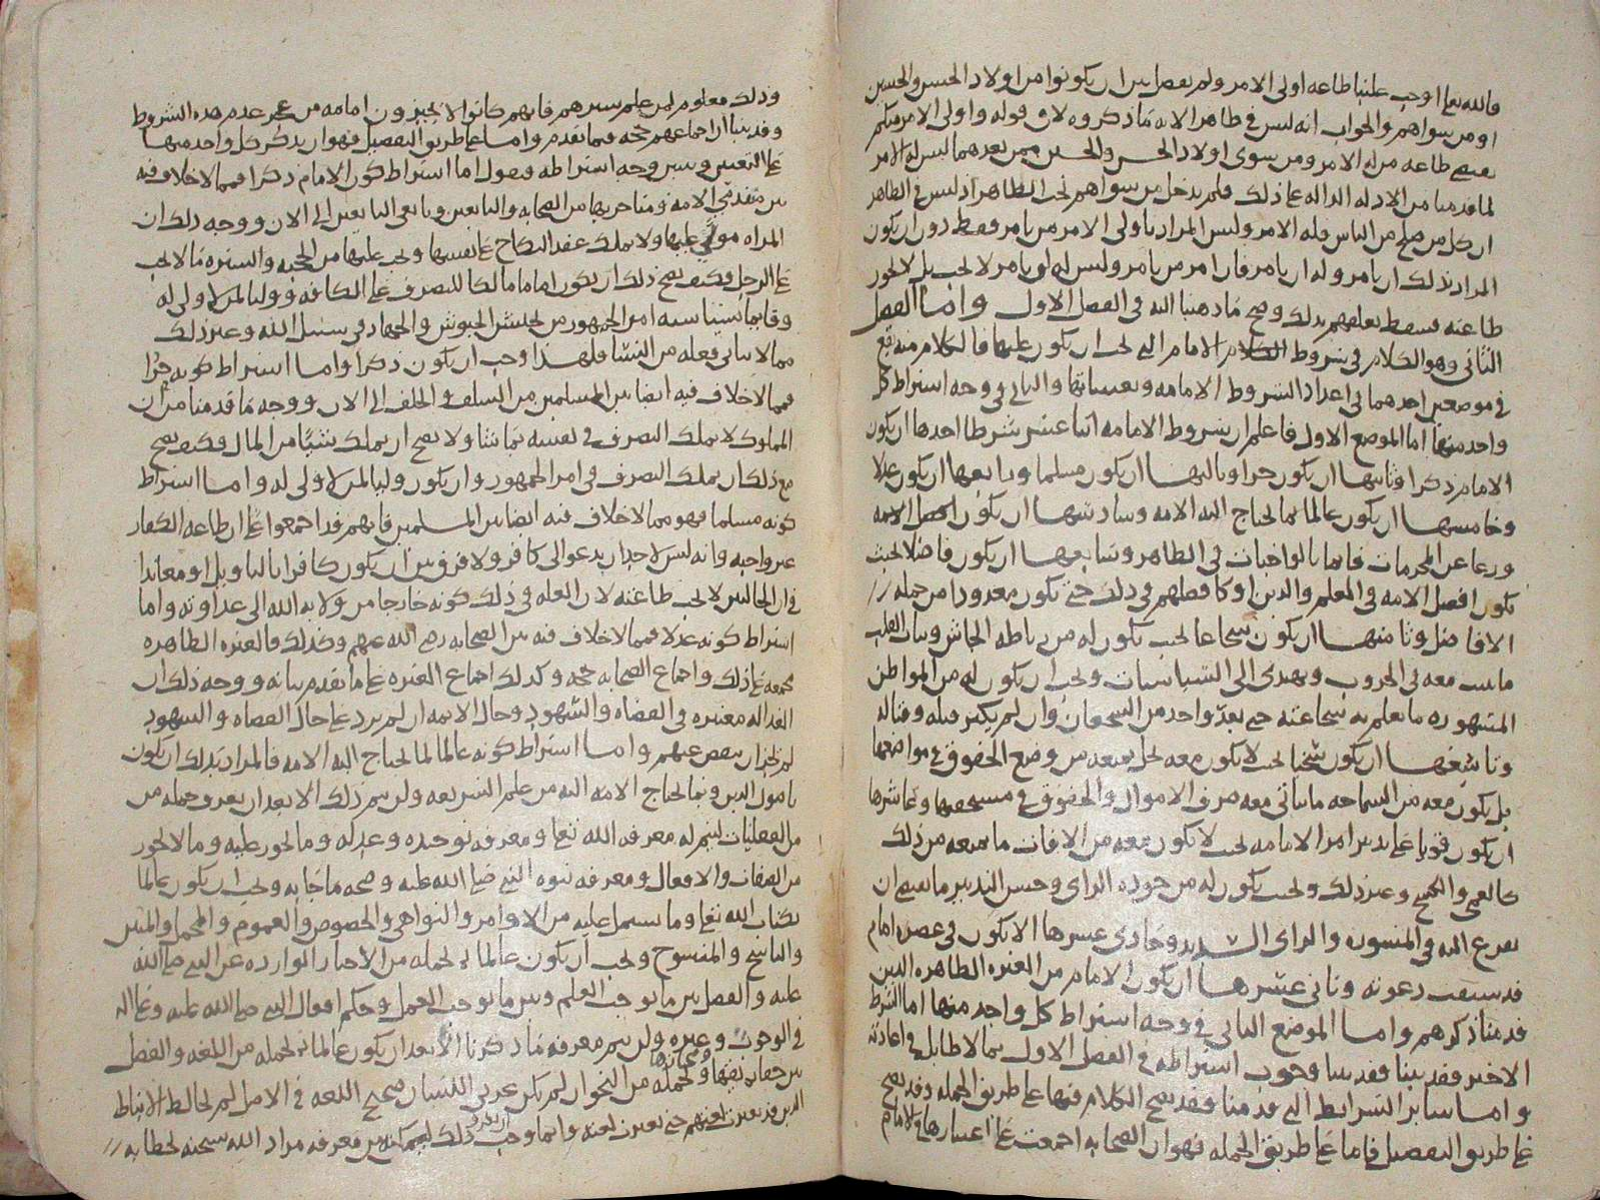 فالله تعالى اوجب علينا طاعه اولى الامر ولم يفصل بين ان يكونوا من اولاد الحسن والحسين
او من سواهم والجواب انه ليس في ظاهر الايه ما ذكروه لان قوله واولى الامر منكم
يقتضي طاعه من له الامر ومن سوى اولاد الحسن والحسين ممن بعدهما ليس له الامر
لما قدمنا من الادله الداله على ذلك فلم يدخل من سواهم تحت الظاهر اذ ليس في الظاهر
ان كل من صلح من الناس فله الامر وليس المراد باولى الامر من يامر فقط دون ان يكون
المراد بذلك ان يامر وله ان يامر فان امر من يامر وليس له ان يامر لا يجب بل لا يجوز
طاعته فسقط تعلقهم بذلك وصح ما ذهبنا اليه في الفصل الاول واما الفصل
الثاني وهو الكلام في شروط الامام التي يجب ان يكون عليها فالكلام منه يقع
في موضعين احدهما في اعداد الشروط الامامه وتعيينها والثاني في وجه اشتراط كل
واحد منها اما الموضع الاول فاعلم ان شروط الامامه اثنا عشر شرطا احدها ان يكون
الامام ذكرا وثانيها ان يكون حرا وثالثها ان يكون مسلما ورابعها ان يكون عدلا
وخامسها ان يكون عالما بما يحتاج اليه الامه وسادسها ان يكون
ورعا عن المحرمات قائما بالواجبات في الظاهر وسابعها ان يكون فاضلا بحيث
يكون افضل الامه في العلم والدين او كافضلهم في ذلك حتى يكون معدودا من جمله
الافاضل وثامنها ان يكون شجاعا بحيث يكون له من رباطه الجاش وثبات القلب
ما يثبت معه في الحروب ويهتدي الى السياسات ويجب ان يكون له من المواطن
المشهوره ما يعلم به شجاعته حتى يعد واحد من الشجعان وان لم يكثر قتله وقتاله
وتاسعها ان يكون سخيا بحيث لا يكون معه بخل يمنعه من وضع الحقوق في مواضعها
بل يكون معه من السماحه ما يتاتى معه صرف الاموال والحقوق في مستحقها وعاشرها
ان يكون قويا على تدبير امر الامامه بحيث لا يكون معه من الافات ما يمنعه من ذلك
كالعمى وغير ذلك وبحيث يكون له من جوده الراى وحسن التدبير ما يقتضي ان
يفزع اليه في المشوره والراى السديد وحادي عشرها الا يكون في عصره امام
قد سبقت دعوته وثاني عشرها ان يكون الامام من العتره الطاهره الذين
قدمنا ذكرهم واما الموضع الثاني في وجه اشتراط كل واحد منها اما الشرط
الاخير فقد بينا وجوب اشتراطه في الفصل الاول بما لا طايل في اعادته
واما ساير الشرايط التي قدمنا فقد يصح الكلام فيها على طريق الجمله وقد يصح
على طريق التفصيل فاما على طريق الجمله فهو ان الصحابه اجمعت على اعتبارها في الامام
وذلك معلوم لمن علم سيرهم فانهم كانوا لا يجيزون امامه من عدم هذه الشروط
وقد بينا ان اجماعهم حجه فيما تقدم واما على طريق التفصيل فهو ان يذكر كل واحد منها
على التعيين ونبين وجه اشتراطه فنقول اما اشتراط كون الامام ذكرا فمما لا خلاف فيه
بين متقدمي الامه ومتاخريها من الصحابه والتابعين وتابعي التابعين الى الان ووجه ذلك ان
المراه مولى عليها ولا تملك عقد النكاح على نفسها ويجب عليها من الحجبه والستره ما لا يجب
على الرجل وكيف يصح ذلك ان يكون اماما مالكا للتصرف على الكافه ووليا لمن لا ولي له
وقائما بسياسه امر الجمهور من تجييش الجيوش والجهاد في سبيل الله وغير ذلك
مما لا يتاتى فعله من النسا فلهذا وجب ان يكون ذكرا واما اشتراط كونه حرا
فمما لا خلاف فيه ايضا بين المسلمين من السلف والخلف الى الان ووجه ما قدمنا من ان
المملوك لا يملك التصرف في نفسه بما شا ولا يصح ان يملك شيئا من المال فكيف يصح
مع ذلك ان يملك التصرف في امر الجمهور وان يكون وليا لمن لا ولي له واما اشتراط
كونه مسلما فهو مما لا خلاف فيه ايضا بين المسلمين فانهم قد اجمعوا على ان طاعه الكفار
غير واجبه وانه ليس لاحد ان يدعو الى كافر ولا فرق بين ان يكون كافرا بالتاويل او معاندا
في ان الحالين لا تجب طاعته لان العله في ذلك كونه خارجا من ولايه الله الى عداوته واما
اشتراط كونه عدلا فمما لا خلاف فيه بين الصحابه رضي الله عنهم وكذلك فالعتره الطاهره
مجمعه على ذلك واجماع الصحابه حجه وكذلك اجماع العتره على ما تقدم بيانه ووجه ذلك ان
العداله معتبره في القضاه والشهود وحال الايمه ان لم يزد على حال القضاه والشهود
لم يجز ان ينقص عنهم واما اشتراط كونه عالما لما يحتاج اليه الامه فالمراد بذلك ان يكون
باصول الدين وبما يحتاج الامه اليه من علم الشريعه ولن يتم ذلك الا بعد ان يعرف جمله من
من العقليات ليتم له معرفه الله تعالى ومعرفه توحيده وعدله وما يجوز عليه وما لا يجوز
من الصفات والافعال ومعرفه نبوه النبي صلى الله عليه وصحه ما جا به ويجب ان يكون عالما
بكتاب الله تعالى وما يشتمل عليه من الاوامر والنواهي والخصوص والعموم والمجمل والمبين
والناسخ والمنسوخ ويجب ان يكون عالما بجمله من الاخبار الوارده عن النبي صلى الله
عليه والفصل بين ما يوجب العلم وبين ما يوجب العمل وحكم افعال النبي صلى الله عليه وعلى اله
في الوجوب وغيره ولن يتم معرفه ما ذكرنا الا بعد ان يكون عالما بجمله من اللغه والفصل
بين حقايقها وبجمله من النحو ان لم يكن عربي اللسان صحيح اللغه في الاصل لم يخالط الانباط
الذين لغتهم حتى لغته وانما وجب ذلك ليمكنه من معرفه مراد الله سبحنه بخطابه